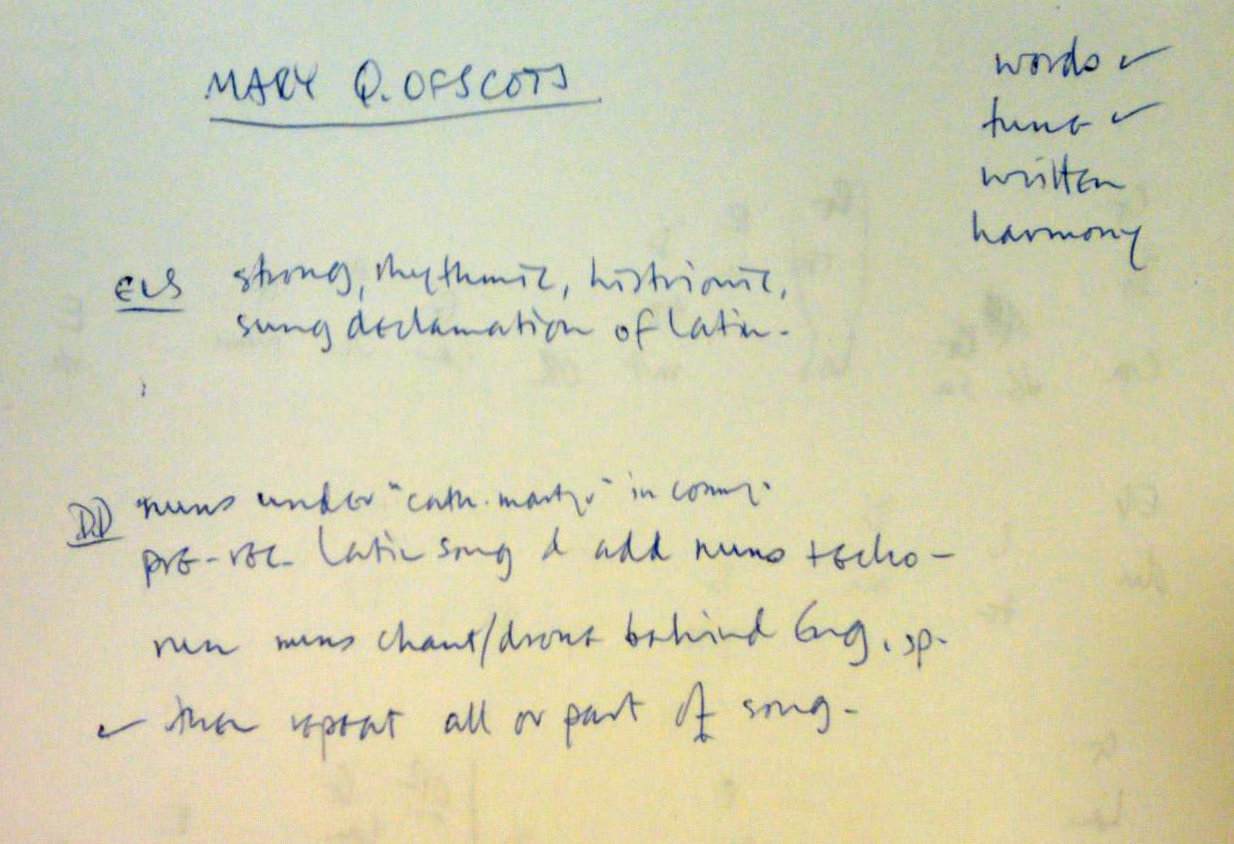 MARY Q. OF SCOTS
words ✓
tune ✓
written
harmony
ELS strong, rhythmic, histrionic,
sung declamation of Latin.
DD nuns under "cath. martyr" in
pre-rec Latin song & add nuns + echo -
run nuns chant/drone behind Eng. sp.
✓ then repeat all or part of song.